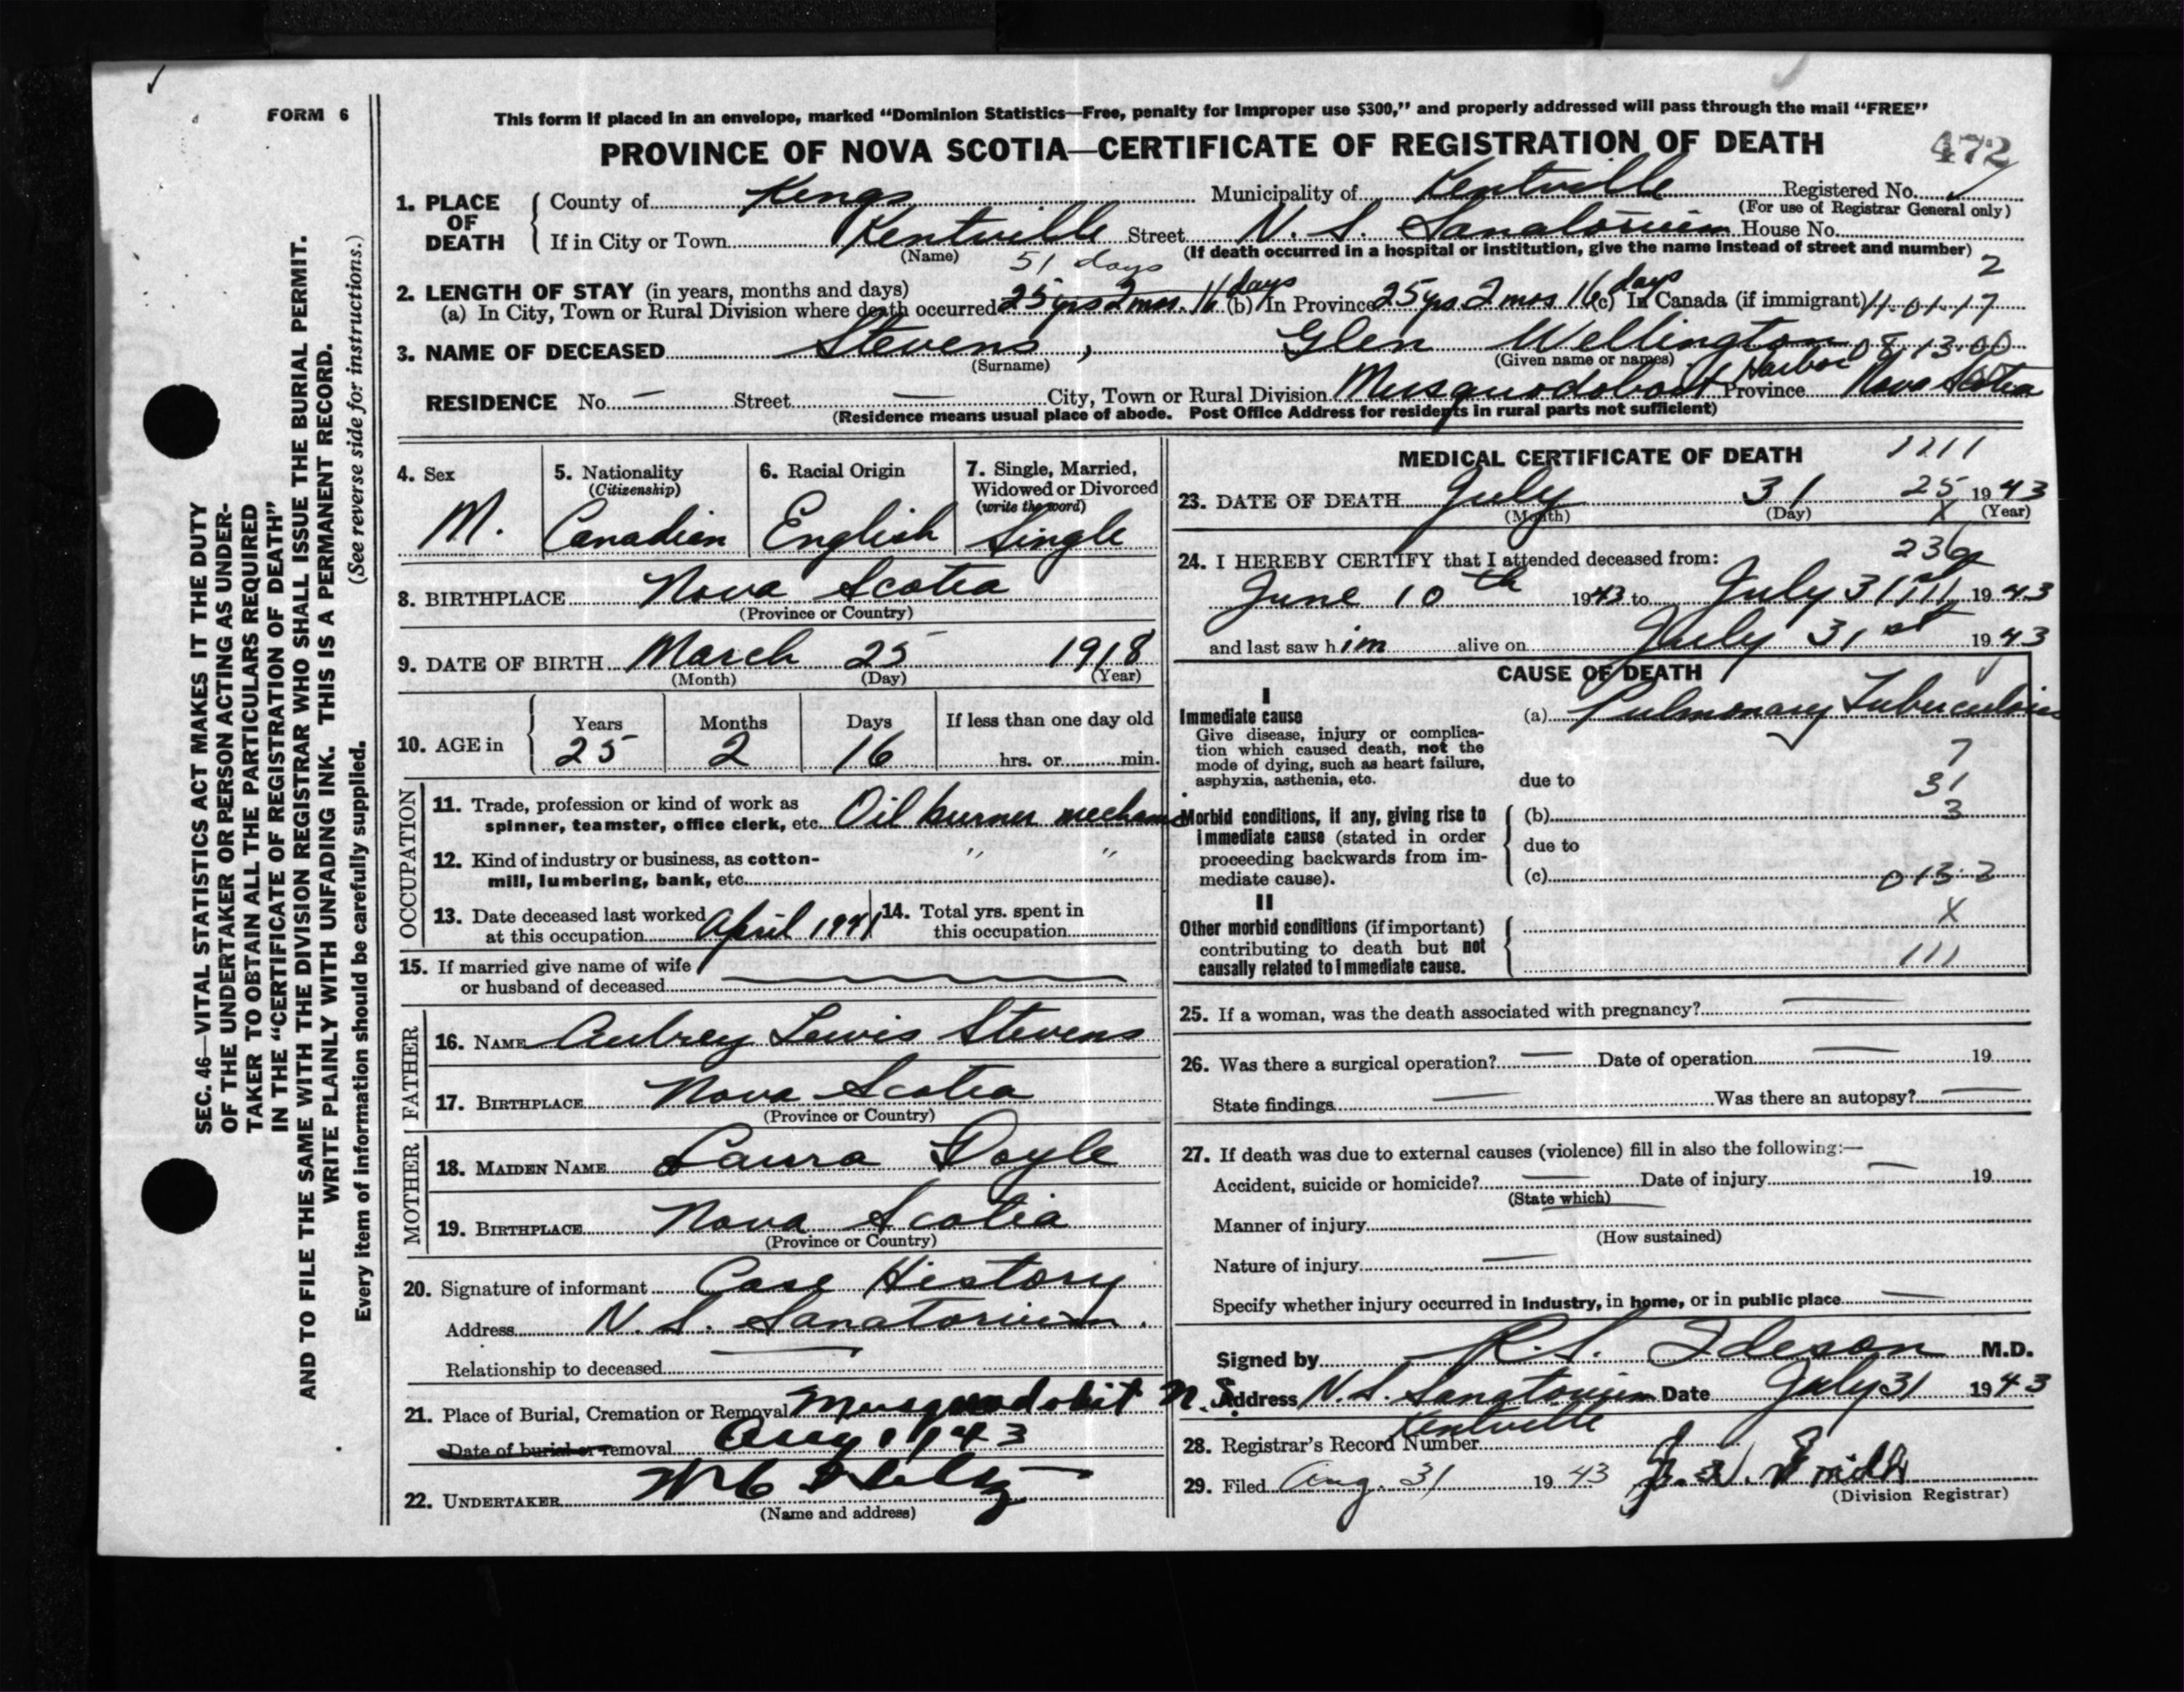 FORM 6
This form if placed in an envelope, marked "Dominion Statistics—Free, penalty for improper use $300," and properly addressed will pass through the mail "FREE"
PROVINCE OF NOVA SCOTIA—CERTIFICATE OF REGISTRATION OF DEATH
472
1. PLACE OF DEATH
County of Kings Municipality of Kentville Registered No.
(For use of Registrar General only)
If in City or Town Kentville Street N. S. Sanatorium House No.
(Name) (If death occurred in a hospital or institution, give the name instead of street and number)
51 days 2
2. LENGTH OF STAY (in years, months and days)
(a) In City, Town or Rural Division where death occurred 25 yrs 2 mos. 16 days (b) In Province 25 yrs 2 mos 16 days (c) In Canada (if immigrant) 11.01.17
3. NAME OF DECEASED Stevens, Glen Wellington 08.13.00
(Surname) (Given name or names)
RESIDENCE No. — Street — City, Town or Rural Division Musquodoboit Harbor Province Nova Scotia
(Residence means usual place of abode. Post Office Address for residents in rural parts not sufficient)
4. Sex M.
5. Nationality (Citizenship) Canadian
6. Racial Origin English
7. Single, Married, Widowed or Divorced (write the word) Single
8. BIRTHPLACE Nova Scotia
(Province or Country)
9. DATE OF BIRTH March 25 1918
(Month) (Day) (Year)
10. AGE in Years 25 Months 2 Days 16 If less than one day old hrs. or min.
OCCUPATION
11. Trade, profession or kind of work as
spinner, teamster, office clerk, etc. Oil burner mechanic
12. Kind of industry or business, as cotton-
mill, lumbering, bank, etc. " "
13. Date deceased last worked
at this occupation April 1941
14. Total yrs. spent in
this occupation
15. If married give name of wife
or husband of deceased
FATHER
16. NAME Aubrey Lewis Stevens
17. BIRTHPLACE Nova Scotia
(Province or Country)
MOTHER
18. MAIDEN NAME Laura Doyle
19. BIRTHPLACE Nova Scotia
(Province or Country)
20. Signature of informant Case History
Address N. S. Sanatorium.
Relationship to deceased —
21. Place of Burial, Cremation or Removal Musquodobit N.S.
Date of burial or removal Aug 1 1943
22. UNDERTAKER
(Name and address)
MEDICAL CERTIFICATE OF DEATH 1211
23. DATE OF DEATH July 31 25 1943
(Month) (Day) X (Year)
24. I HEREBY CERTIFY that I attended deceased from:
June 10th 1943 to July 31st 1943
and last saw him alive on July 31st 1943
CAUSE OF DEATH
I
Immediate cause
Give disease, injury or complica-
tion which caused death, not the
mode of dying, such as heart failure,
asphyxia, asthenia, etc.
(a) Pulmonary Tuberculosis
7
due to 31
Morbid conditions, if any, giving rise to
immediate cause (stated in order
proceeding backwards from im-
mediate cause).
(b) 3
due to
(c) 013.2
II
Other morbid conditions (if important)
contributing to death but not
causally related to immediate cause.
X
111
25. If a woman, was the death associated with pregnancy? —
26. Was there a surgical operation? — Date of operation — 19
State findings — Was there an autopsy? —
27. If death was due to external causes (violence) fill in also the following:—
Accident, suicide or homicide? — Date of injury — 19
(State which)
Manner of injury
(How sustained)
Nature of injury —
Specify whether injury occurred in industry, in home, or in public place —
Signed by R. S. Ideson M.D.
Address N. S. Sanatorium Date July 31 1943
Kentville
28. Registrar's Record Number
29. Filed Aug. 31 1943
(Division Registrar)
SEC. 46—VITAL STATISTICS ACT MAKES IT THE DUTY
OF THE UNDERTAKER OR PERSON ACTING AS UNDER-
TAKER TO OBTAIN ALL THE PARTICULARS REQUIRED
IN THE "CERTIFICATE OF REGISTRATION OF DEATH"
AND TO FILE THE SAME WITH THE DIVISION REGISTRAR WHO SHALL ISSUE THE BURIAL PERMIT.
WRITE PLAINLY WITH UNFADING INK. THIS IS A PERMANENT RECORD.
Every item of information should be carefully supplied. (See reverse side for instructions.)